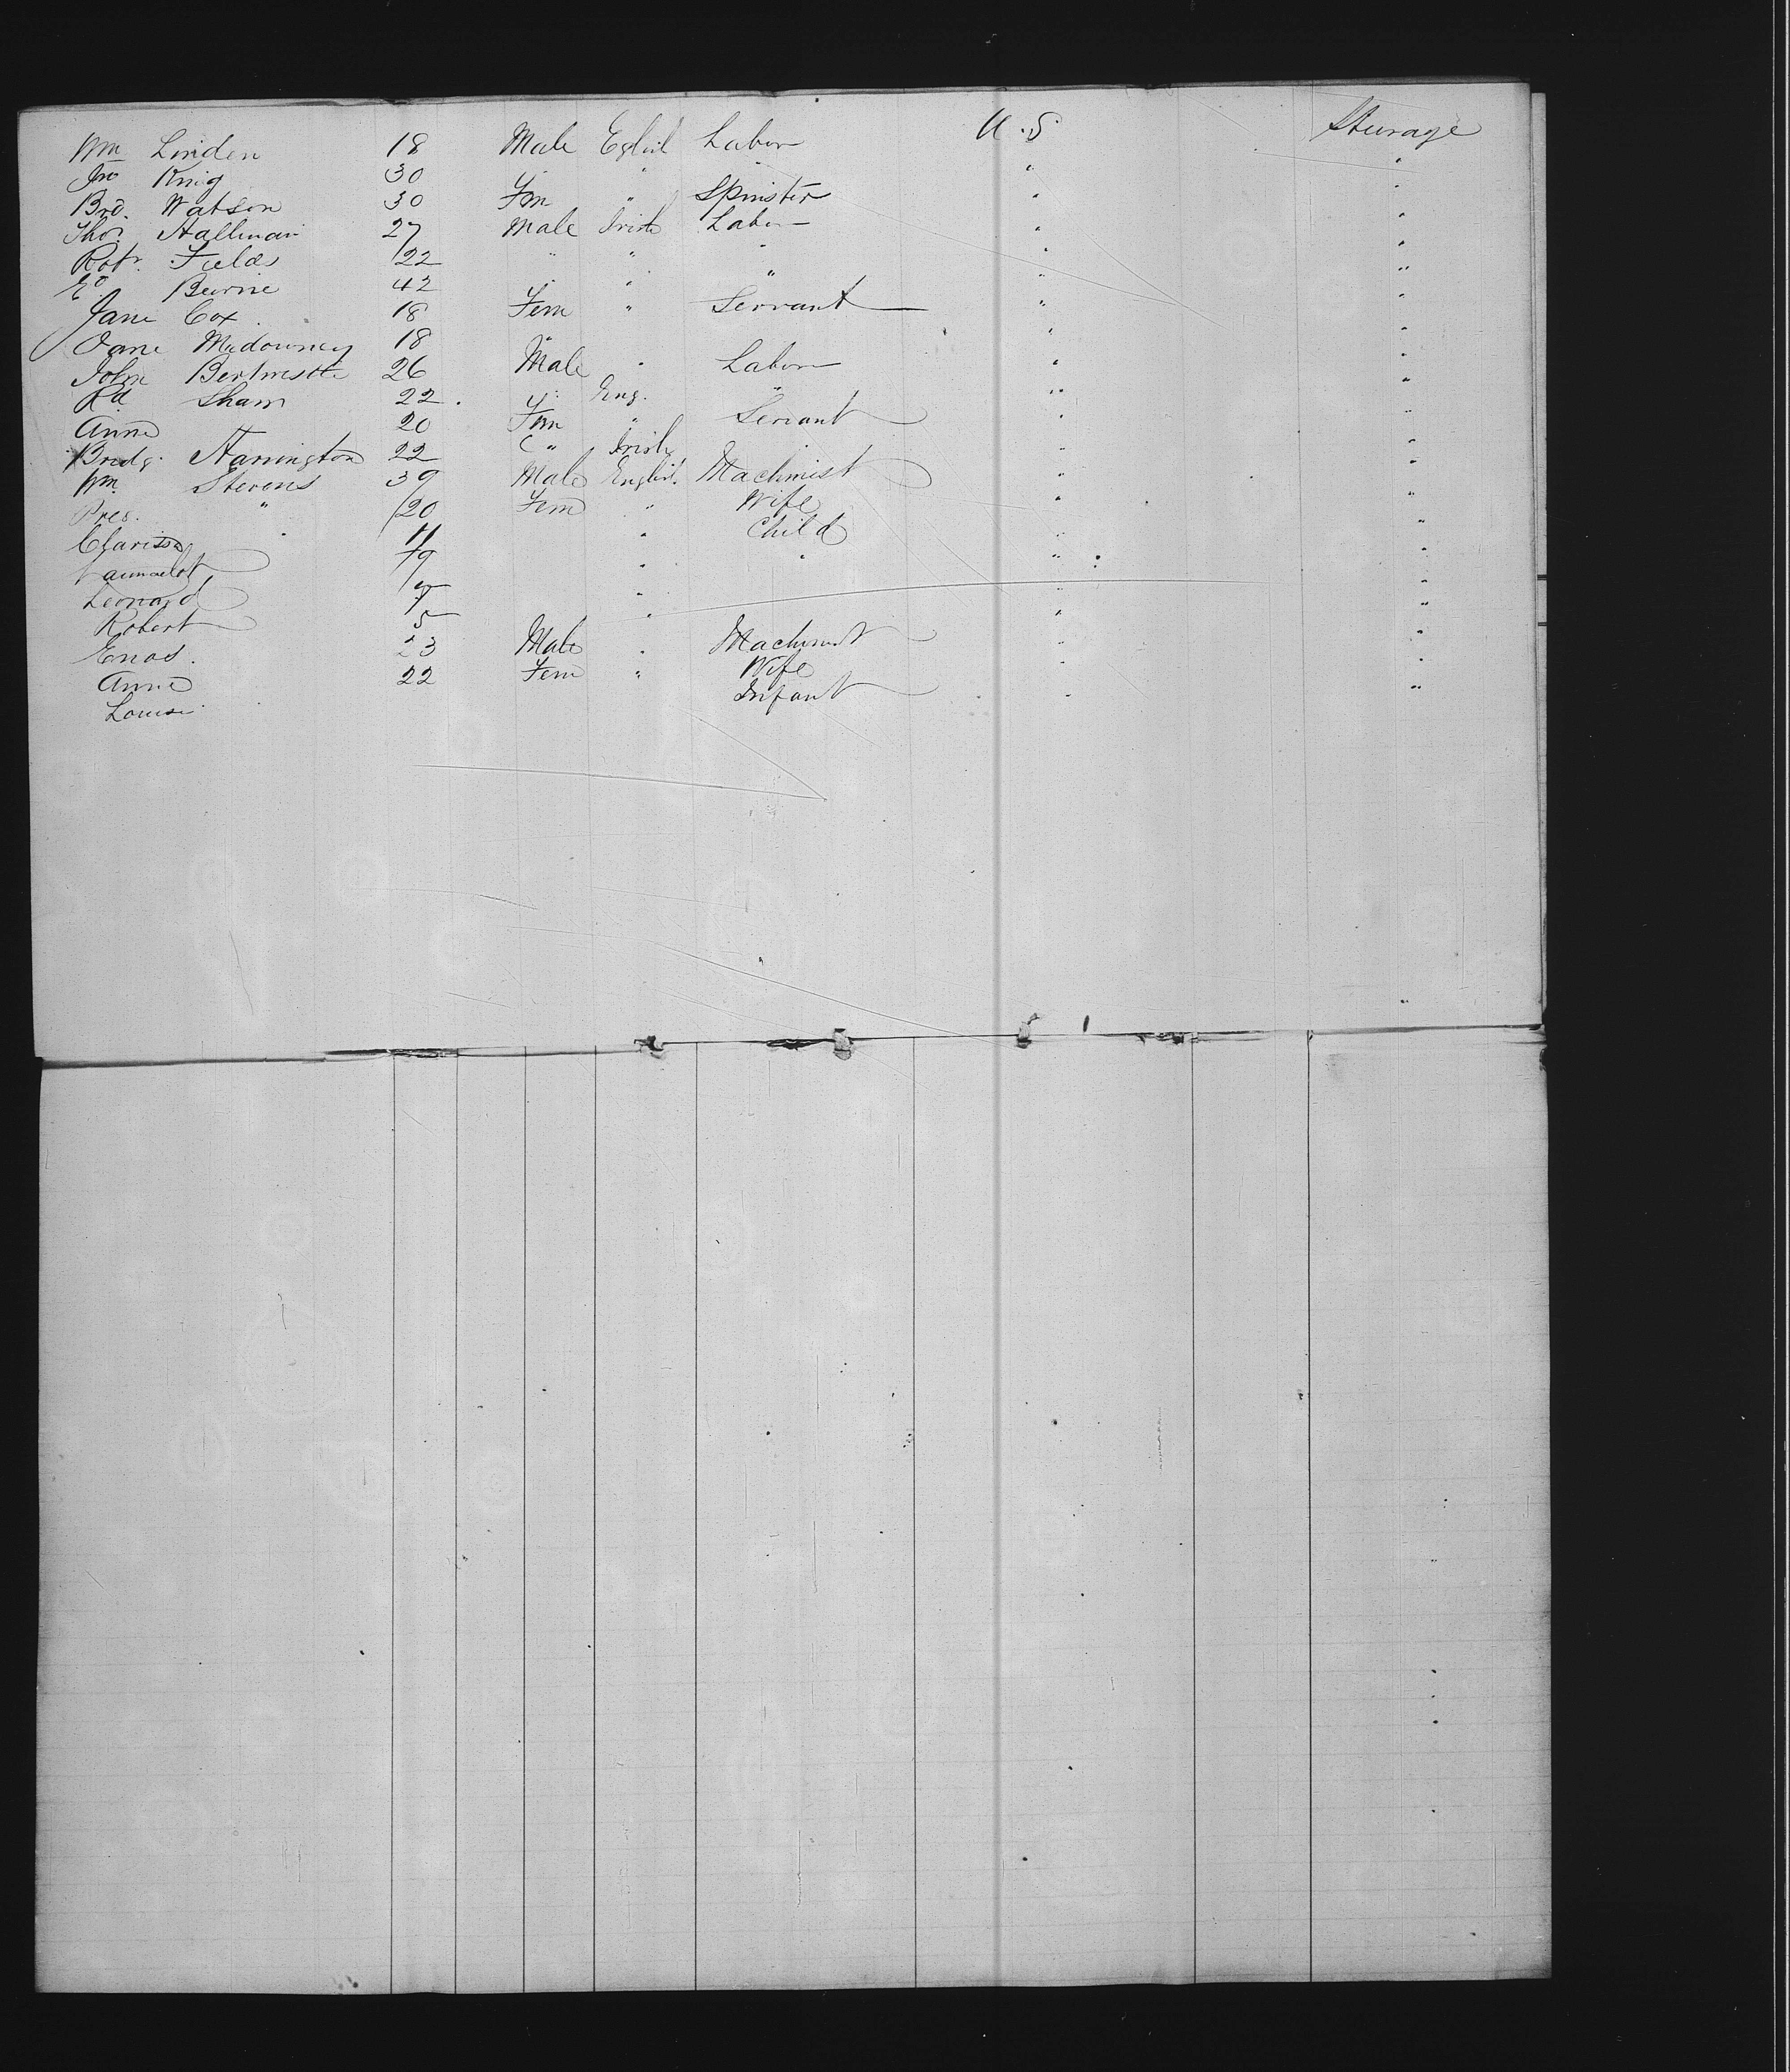 Wm Linden 18 Male Eglish Labor U.S. Sturage
Jno King 30 " " " " "
Brd. Watson 30 Fem " Spinster " "
Thos. Hallinan 27 Male Irish Labor " "
Robt. Fields 22 " " " " "
Ed. Burne 42 " " " " "
Jane Cox 18 Fem " Servant " "
Jane 18 " " "
John 26 Male " Labor " "
Rd Sham 22 " Eng. " " "
Anne 20 Fem " Servant " "
Bridg. Harrington 22 " Irish " "
Wm. Stevens 39 Male English Machinist "
" 20 Fem " Wife " "
Clarissa " 11 " Child " "
9 " " " "
Leonard 7 " " "
Robert 5 " " "
Enos. 23 Male " Machinist " "
Anne 22 Fem " Wife " "
Louisa Infant " "